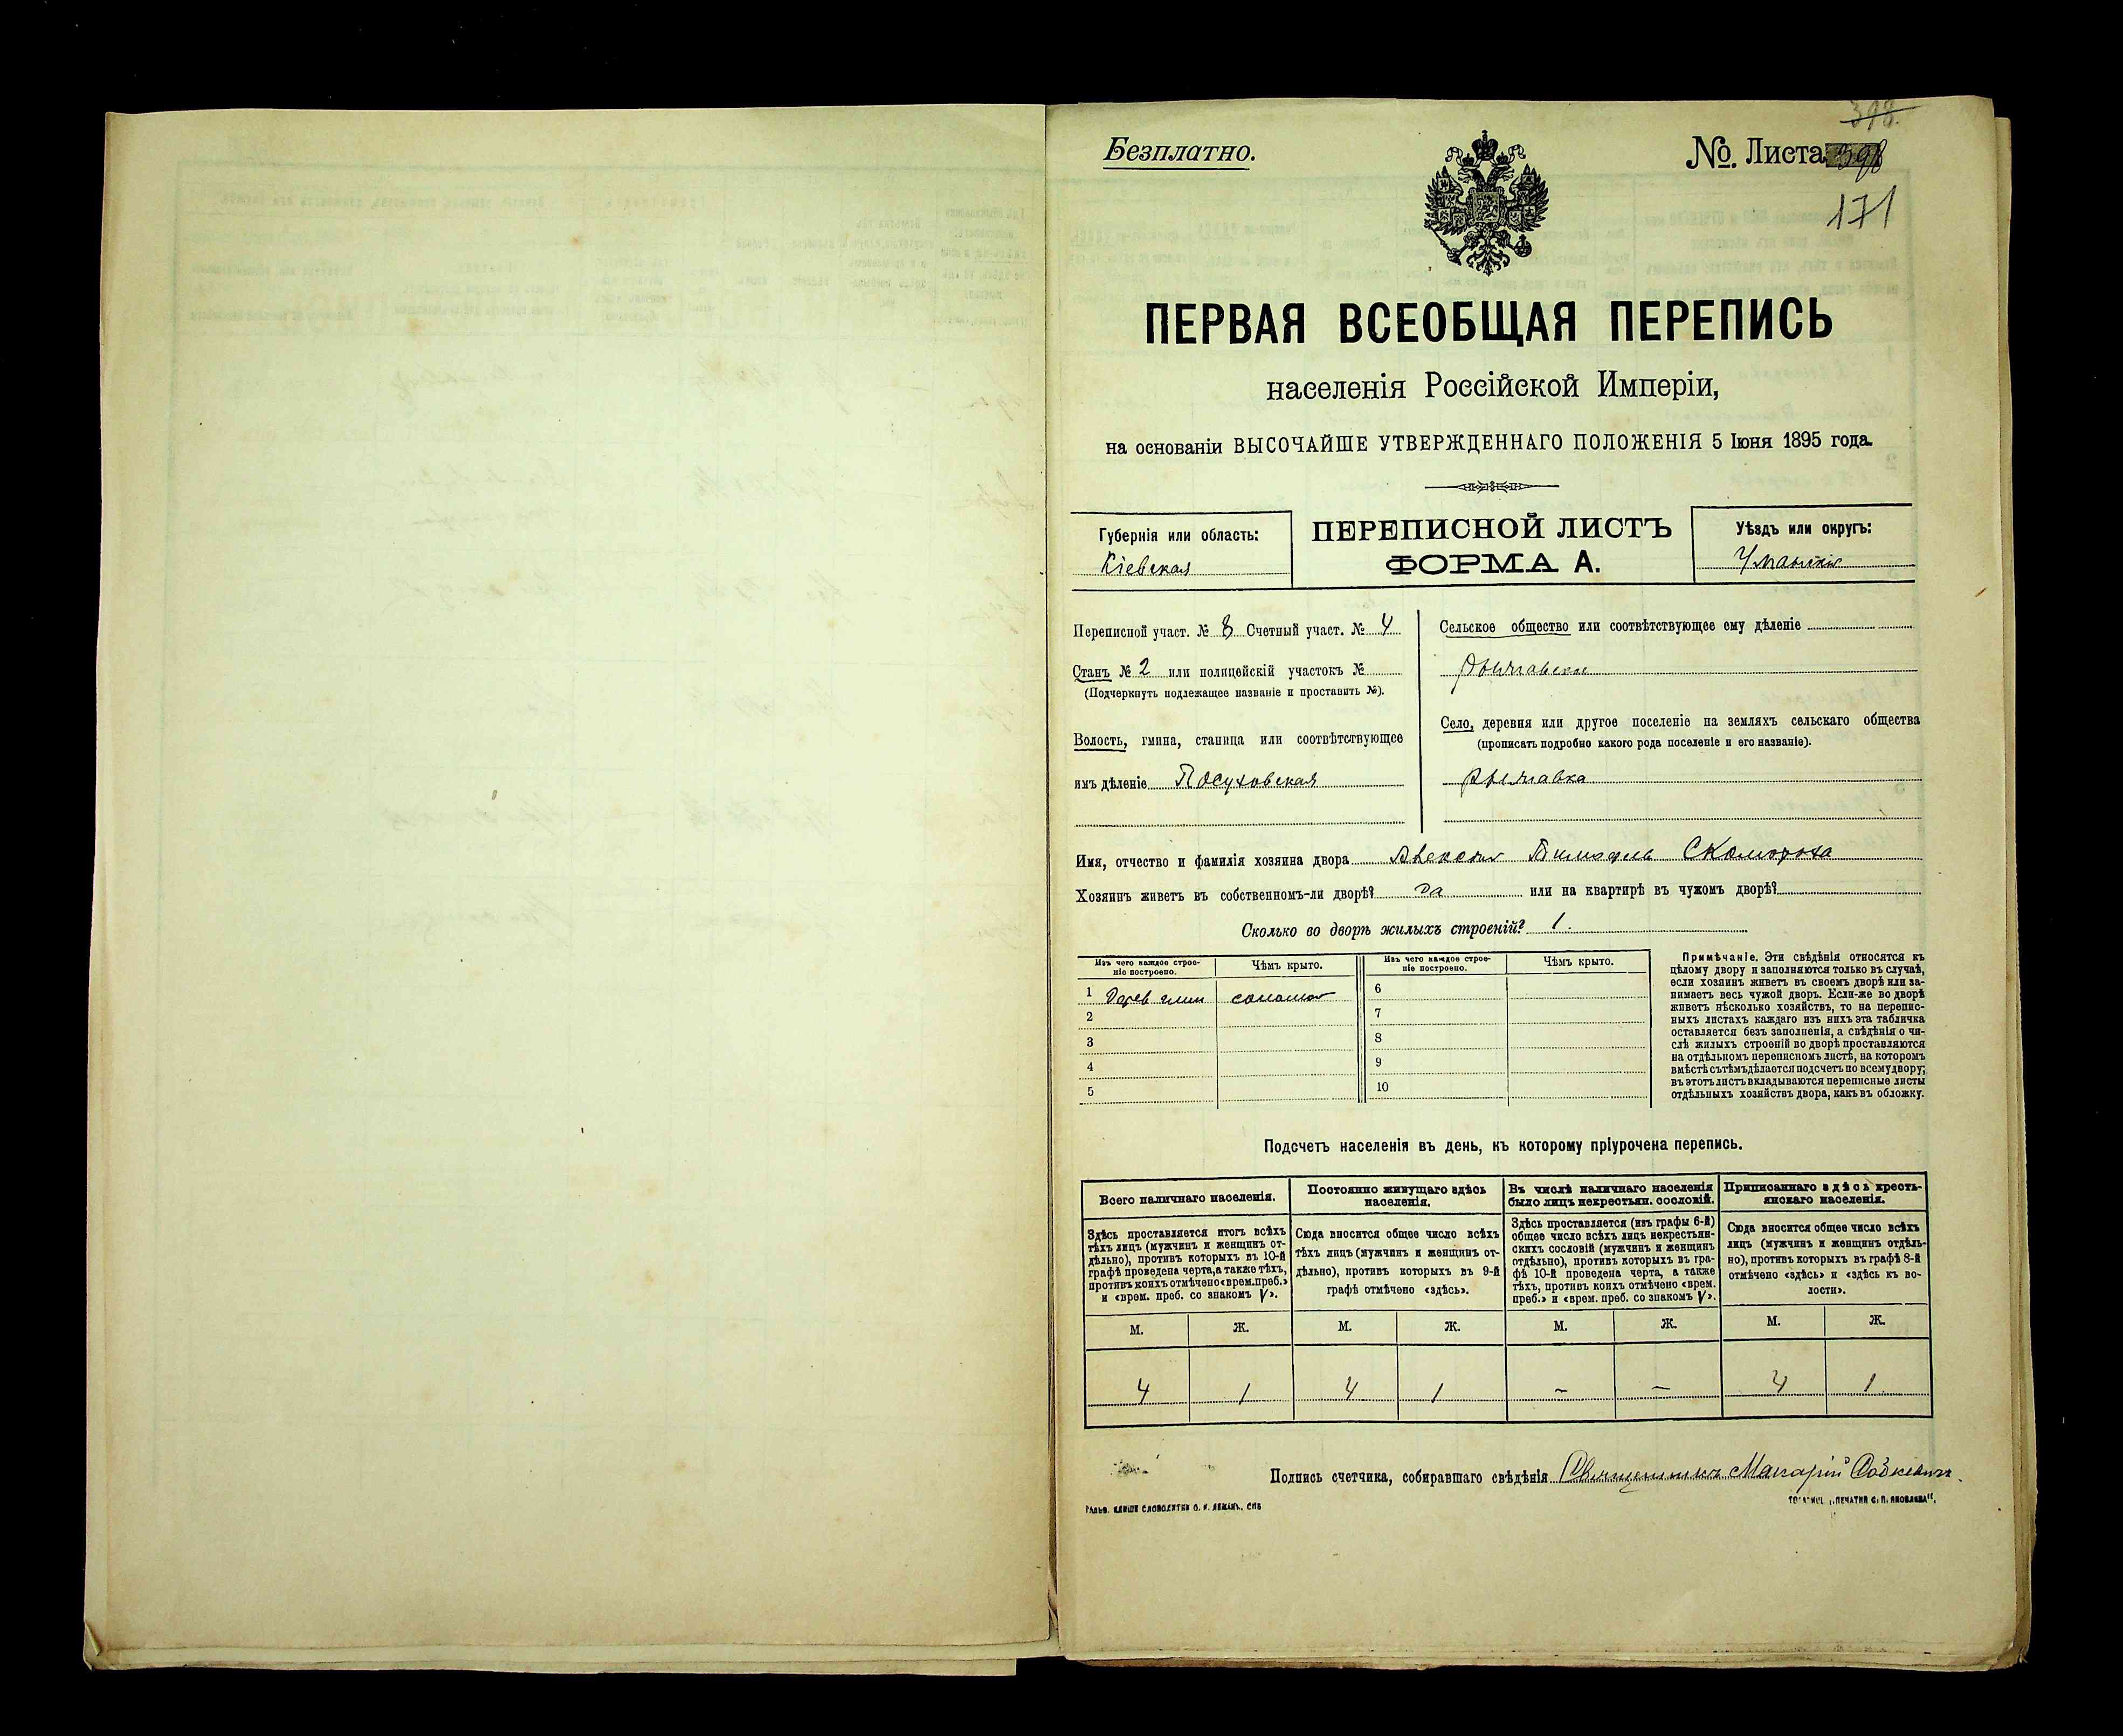 398.
Безплатно.
№. Листа 398
171
ПЕРВАЯ ВСЕОБЩАЯ ПЕРЕПИСЬ
населенія Россійской Имперіи,
на основаніи ВЫСОЧАЙШЕ УТВЕРЖДЕННАГО ПОЛОЖЕНІЯ 5 Іюня 1895 года.
Губернія или область:
Кіевская
ПЕРЕПИСНОЙ ЛИСТЪ
ФОРМА А.
Уѣздъ или округъ:
Уманскій
Переписной участ. № 8 Счетный участ. № 4
Станъ № 2 или полицейскій участокъ №
(Подчеркнуть подлежащее названіе и проставить №).
Волость, гмина, станица или соотвѣтствующее
имъ дѣленіе Посуховская
Сельское общество или соотвѣтствующее ему дѣленіе
Село, деревня или другое поселеніе на земляхъ сельскаго общества
(прописать подробно какого рода поселеніе и его названіе).
Имя, отчество и фамилія хозяина двора Скомороха
Хозяинъ живетъ въ собственномъ-ли дворѣ? да или на квартирѣ въ чужомъ дворѣ?
Сколько во дворѣ жилыхъ строеній? 1.
Изъ чего каждое строе-
ніе построено.
Чѣмъ крыто.
Изъ чего каждое строе-
ніе построено.
Чѣмъ крыто.
1 Дерев глин
6
2
7
3
8
4
9
5
10
Примѣчаніе. Эти свѣдѣнія относятся къ
цѣлому двору и заполняются только въ случаѣ,
если хозяинъ живетъ въ своемъ дворѣ или за-
нимаетъ весь чужой дворъ. Если-же во дворѣ
живетъ нѣсколько хозяйствъ, то на перепис-
ныхъ листахъ каждаго изъ нихъ эта табличка
оставляется безъ заполненія, а свѣдѣнія о чи-
слѣ жилыхъ строеній во дворѣ проставляются
на отдѣльномъ переписномъ листѣ, на которомъ
вмѣстѣ съ тѣмъ дѣлается подсчетъ по всему двору;
въ этотъ листъ вкладываются переписные листы
отдѣльныхъ хозяйствъ двора, какъ въ обложку.
Подсчетъ населенія въ день, къ которому пріурочена перепись.
Всего наличнаго населенія.
Здѣсь проставляется итогъ всѣхъ
тѣхъ лицъ (мужчинъ и женщинъ от-
дѣльно), противъ которыхъ въ 10-й
графѣ проведена черта, а также тѣхъ,
противъ коихъ отмѣчено «врем. преб.»
и «врем. преб. со знакомъ V».
Постоянно живущаго здѣсь
населенія.
Сюда вносится общее число всѣхъ
тѣхъ лицъ (мужчинъ и женщинъ от-
дѣльно), противъ которыхъ въ 9-й
графѣ отмѣчено «здѣсь».
Въ числѣ наличнаго населенія
было лицъ некрестьян. сословій.
Здѣсь проставляется (изъ графы 6-й)
общее число всѣхъ лицъ некрестьян-
скихъ сословій (мужчинъ и женщинъ
отдѣльно), противъ которыхъ въ гра-
фѣ 10-й проведена черта, а также
тѣхъ, противъ коихъ отмѣчено «врем.
преб.» и «врем. преб. со знакомъ V».
Приписаннаго здѣсь кресть-
янскаго населенія.
Сюда вносится общее число всѣхъ
лицъ (мужчинъ и женщинъ отдѣль-
но), противъ которыхъ въ графѣ 8-й
отмѣчено «здѣсь» и «здѣсь къ во-
лости».
М. Ж. М. Ж. М. Ж. М. Ж.
4 1 4 1 – – 4 1
Подпись счетчика, собиравшаго свѣдѣнія Священникъ Макарій